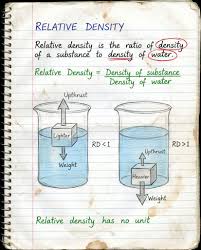 RELATIVE DENSITY
Relative density is the ratio of density
of a substance to density of water.
Relative Density = Density of substance
Density of water
Upthrust
Lighter
RD < 1
Weight
Upthrust
RD > 1
Heavier
Weight
Relative density has no unit